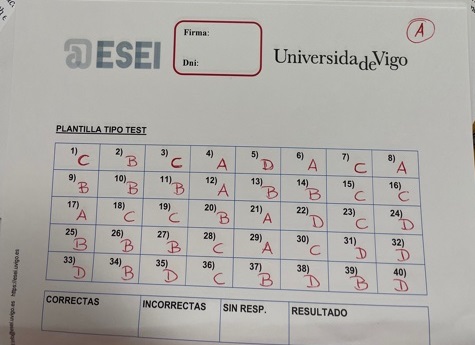 A
@ESEI
Firma:
Dni:
UniversidadeVigo
PLANTILLA TIPO TEST
1) C 2) B 3) C 4) A 5) D 6) A 7) C 8) A
9) B 10) B 11) B 12) A 13) B 14) B 15) C 16) C
17) A 18) C 19) C 20) B 21) A 22) D 23) C 24) D
25) B 26) B 27) B 28) C 29) A 30) C 31) D 32) D
33) D 34) B 35) D 36) C 37) B 38) D 39) B 40) D
CORRECTAS INCORRECTAS SIN RESP. RESULTADO